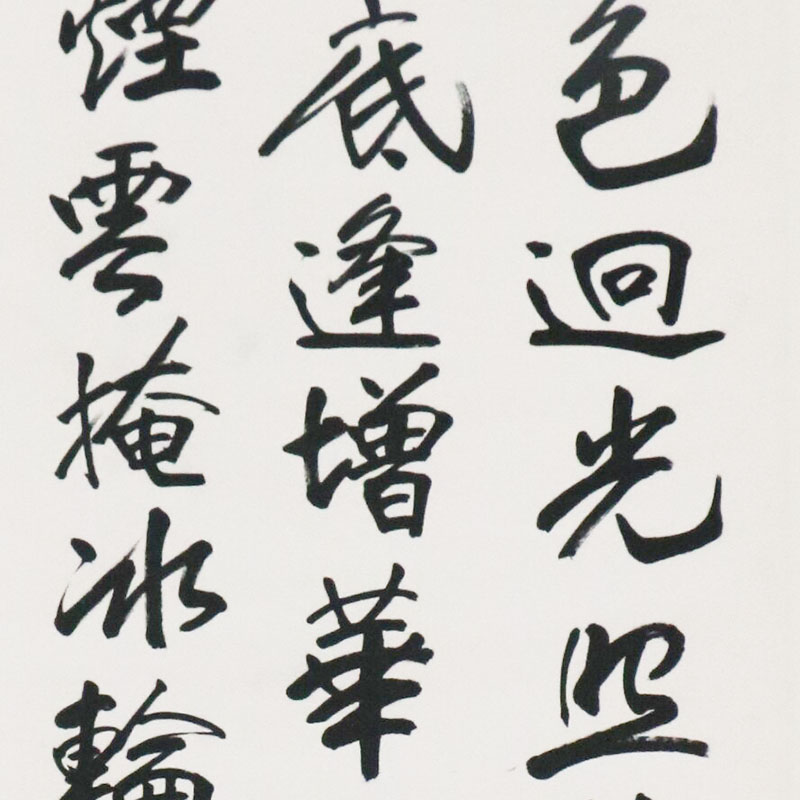 色迥光照
底逢增華
煙雲掩冰輪